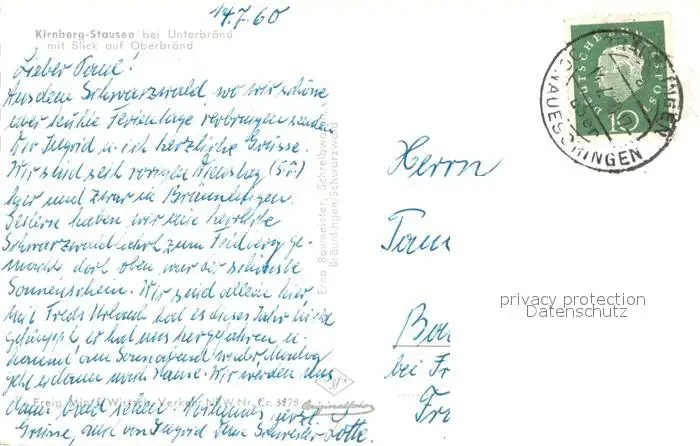 14.7.60
Kirnberg-Stausee bei Unterbränd
mit Blick auf Oberbränd
Lieber Paul!
Aus dem Schwarzwald, wo wir schöne
aber kühle Ferientage verbringen senden
Dir Ingrid u. ich herzliche Grüsse.
Wir sind seit vorigen Dienstag (5.7.)
hier und zwar in Bräunlingen.
Gestern haben wir eine herrliche
Schwarzwaldfahrt zum Feldberg ge-
macht, dort oben war der schönste
Sonnenschein. Wir sind allein hier,
mit Freds Urlaub hat es dieses Jahr nicht
geklappt, er hat uns hergefahren u.
kommt am Sonnabend wieder, Montag
geht es dann nach Hause. Wir werden uns
dann bald sehen. Nochmals herzl.
Grüsse, auch von Ingrid Deine Schwester Lotte.
Freig. Min. f. Wirtsch. Verkehr NRW Nr. Cr. 3278
Erna Baumeister, Schreibwaren
Bräunlingen/Schwarzwald
Originalfoto
DEUTSCHE BUNDESPOST
10
DONAUESCHINGEN
Herrn
bei Fr
privacy protection
Datenschutz